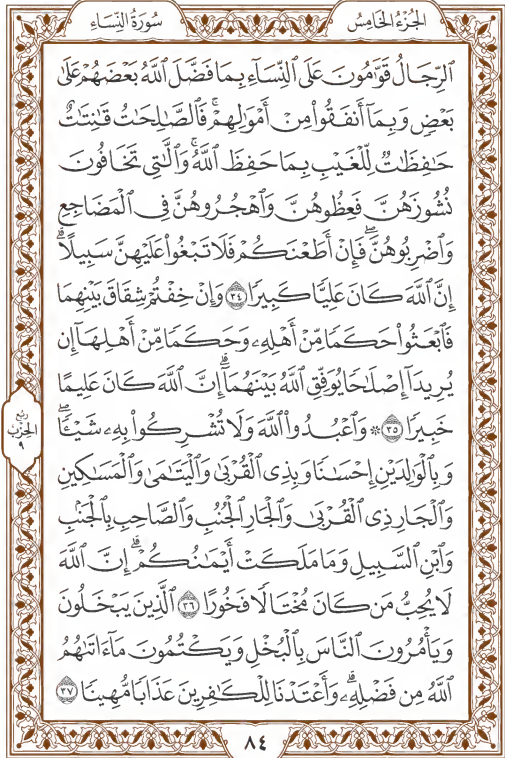 الجُزْءُ الخَامِسُ
سُورَةُ النِّسَاءِ
ٱلرِّجَالُ قَوَّٰمُونَ عَلَى ٱلنِّسَآءِ بِمَا فَضَّلَ ٱللَّهُ بَعْضَهُمْ عَلَىٰ
بَعْضٍ وَبِمَآ أَنفَقُوا۟ مِنْ أَمْوَٰلِهِمْ ۚ فَٱلصَّٰلِحَٰتُ قَٰنِتَٰتٌ
حَٰفِظَٰتٌ لِّلْغَيْبِ بِمَا حَفِظَ ٱللَّهُ ۚ وَٱلَّٰتِى تَخَافُونَ
نُشُوزَهُنَّ فَعِظُوهُنَّ وَٱهْجُرُوهُنَّ فِى ٱلْمَضَاجِعِ
وَٱضْرِبُوهُنَّ ۖ فَإِنْ أَطَعْنَكُمْ فَلَا تَبْغُوا۟ عَلَيْهِنَّ سَبِيلًا ۗ
إِنَّ ٱللَّهَ كَانَ عَلِيًّا كَبِيرًا ٣٤ وَإِنْ خِفْتُمْ شِقَاقَ بَيْنِهِمَا
فَٱبْعَثُوا۟ حَكَمًا مِّنْ أَهْلِهِۦ وَحَكَمًا مِّنْ أَهْلِهَآ إِن
يُرِيدَآ إِصْلَٰحًا يُوَفِّقِ ٱللَّهُ بَيْنَهُمَآ ۗ إِنَّ ٱللَّهَ كَانَ عَلِيمًا
خَبِيرًا ٣٥ ۞ وَٱعْبُدُوا۟ ٱللَّهَ وَلَا تُشْرِكُوا۟ بِهِۦ شَيْـًٔا ۖ
وَبِٱلْوَٰلِدَيْنِ إِحْسَٰنًا وَبِذِى ٱلْقُرْبَىٰ وَٱلْيَتَٰمَىٰ وَٱلْمَسَٰكِينِ
وَٱلْجَارِ ذِى ٱلْقُرْبَىٰ وَٱلْجَارِ ٱلْجُنُبِ وَٱلصَّاحِبِ بِٱلْجَنۢبِ
وَٱبْنِ ٱلسَّبِيلِ وَمَا مَلَكَتْ أَيْمَٰنُكُمْ ۗ إِنَّ ٱللَّهَ
لَا يُحِبُّ مَن كَانَ مُخْتَالًا فَخُورًا ٣٦ ٱلَّذِينَ يَبْخَلُونَ
وَيَأْمُرُونَ ٱلنَّاسَ بِٱلْبُخْلِ وَيَكْتُمُونَ مَآ ءَاتَىٰهُمُ
ٱللَّهُ مِن فَضْلِهِۦ ۗ وَأَعْتَدْنَا لِلْكَٰفِرِينَ عَذَابًا مُّهِينًا ٣٧
رُبْع
الحِزْب
٩
٨٤